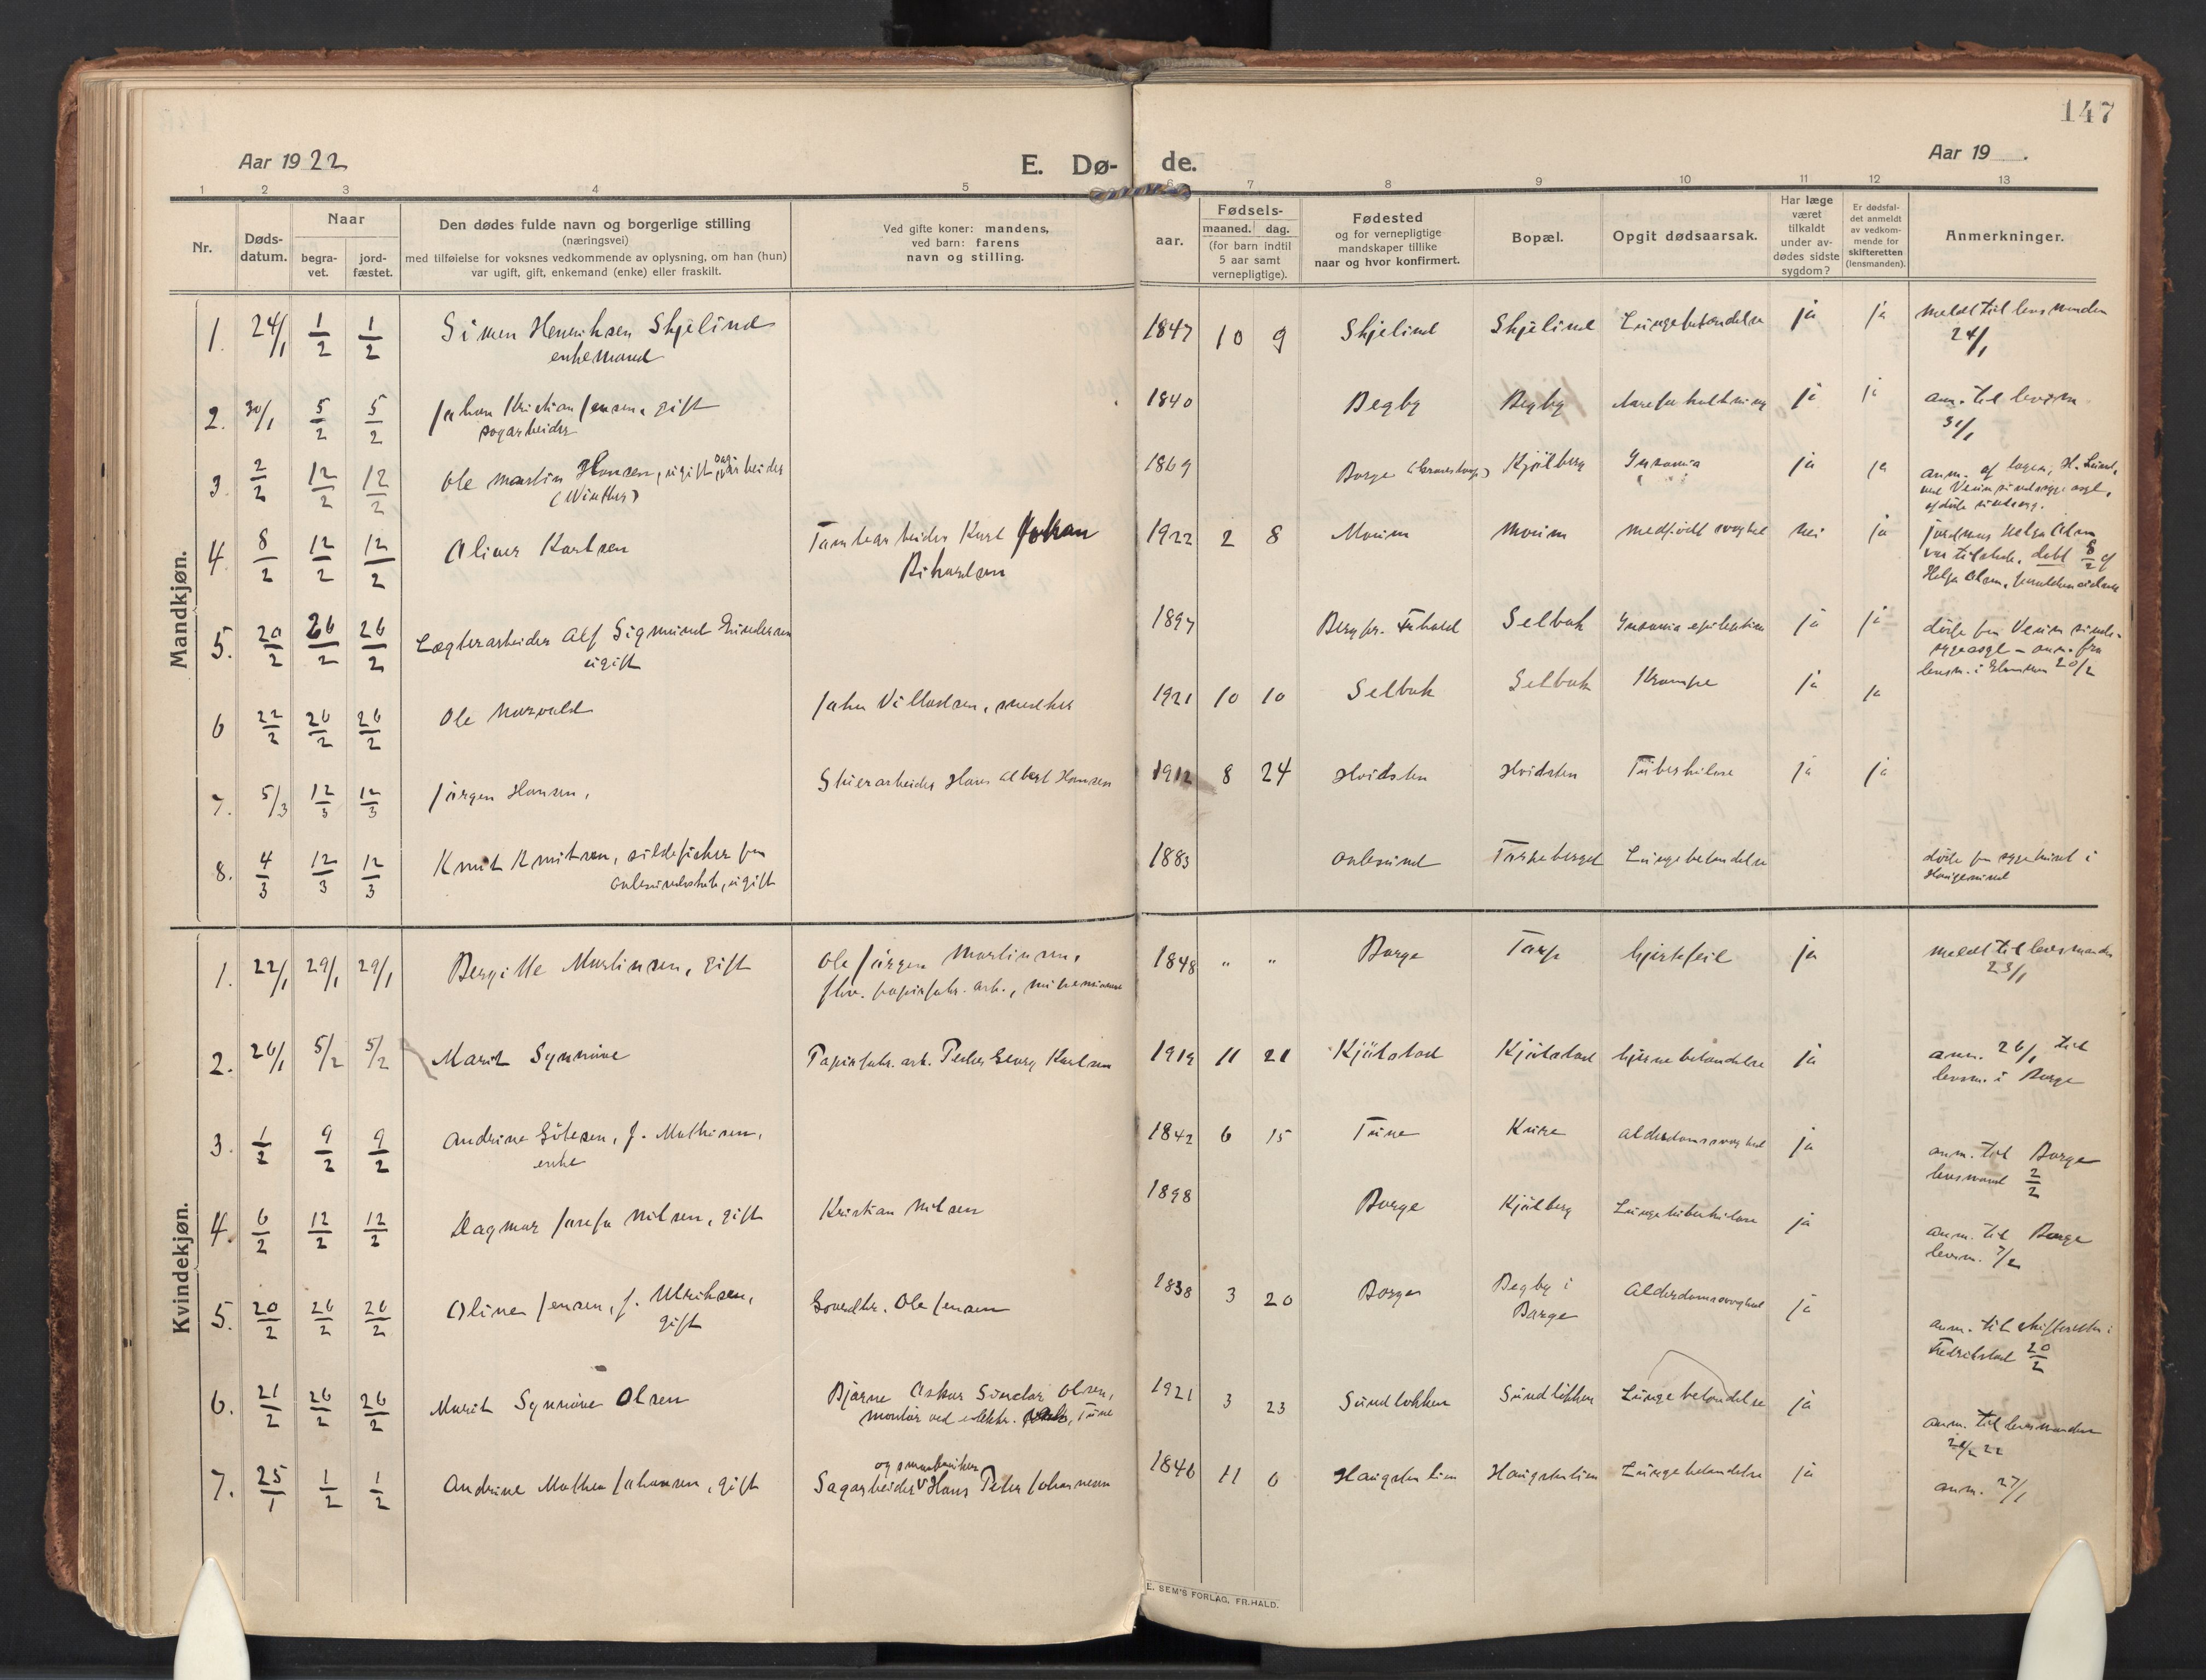 147
Aar 1922
E. Dø-de.
Aar 19 .
1 2 3 4 5 6 7 8 9 10 11 12 13
Nr.
Døds-
datum.
Naar
begra-
vet.
jord-
fæstet.
Den dødes fulde navn og borgerlige stilling
(næringsvei)
med tilføielse for voksnes vedkommende av oplysning, om han (hun)
var ugift, gift, enkemand (enke) eller fraskilt.
Ved gifte koner: mandens,
ved barn: farens
navn og stilling.
aar.
Fødsels-
maaned. dag.
(for barn indtil
5 aar samt
vernepligtige).
Fødested
og for vernepligtige
mandskaper tillike
naar og hvor konfirmert.
Bopæl.
Opgit dødsaarsak.
Har læge
været
tilkaldt
under av-
dødes sidste
sygdom?
Er dødsfal-
det anmeldt
av vedkom-
mende for
skifteretten
(lensmanden).
Anmerkninger.
Mandkjøn.
1. 24/1 1/2 1/2 Simen Henriksen Skjelind 1847 10 9 Skjelind Skjelind Lungebetændelse ja ja meldt til lensmanden
enkemand 24/1
2. 30/1 5/2 5/2 Johan Kristian Jensen, gift 1840 Begby Begby Aareforkalkning ja ja anm. til lensm.
sagarbeider 31/1
3. 2/2 12/2 12/2 Ole Martin Hansen, ugift, arbeider 1869 Borge Kjølberg Insania ja ja anm. af lægen, H. Lund,
(Winther) ved Veum sindssygeasyl,
4. 8/2 12/2 12/2 Oliver Karlsen Tomtearbeider Karl Johan 1922 2 8 Moum Moum medfødt svaghet nei ja jordmor Helga Olsen
Rikardsen var tilstede, døbt 8/2 af
Helga Olsen,
5. 20/2 26/2 26/2 Lægterarbeider Alf Sigmund Gundersen 1897 Berg pr. Frhald Selbak Insania epileptica ja ja døde paa Veum sinds-
ugift sygeasyl - anm. fra
lensm. i Glemmen 20/2
6 22/2 26/2 26/2 Ole Norvald Johan Villadsen, snekker 1921 10 10 Selbak Selbak Krampe ja ja
7. 5/3 12/3 12/3 Jørgen Hansen, Skierarbeider Hans Albert Hansen 1912 8 24 Hvidsten Hvidsten Tuberkulose ja ja
8. 4/3 12/3 12/3 Knut Knutsen, sildefisker paa 1883 Aalesund Torpeberget Lungebetændelse døde paa sygehuset i
ugift Haugesund
Kvindekjøn.
1. 22/1 29/1 29/1 Bergitte Martinsen, gift Ole Jørgen Martinsen, 1848 " " Borge Torp hjertefeil ja meldt til lensmanden
fhv. papirfabr. arb., 23/1
2. 26/1 5/2 5/2 Marit Synnöve Papirfabr. arb. Peder Georg Karlsen 1919 11 21 Kjølstad Kjølstad hjernebetændelse ja anm. 26/1 til
lensm. i Borge
3. 1/2 9/2 9/2 Andrine Götesen, f. Mathisen, 1842 6 15 Tune Kure Alderdomssvaghed ja anm. til Borge
enke lensmand 2/2
4. 6/2 12/2 12/2 Dagmar Josefa Nilsen, gift Kristian Nilsen 1898 Borge Kjølberg Lungetuberkulose ja anm. til Borge
lensm. 7/2
5. 20/2 26/2 26/2 Oline Jensen, f. Ulriksen, Gaardbr. Ole Jensen 1838 3 20 Borge Begby i Alderdomssvaghet ja anm. til skifteretten i
gift Borge Fredrikstad 20/2
6. 21/2 26/2 26/2 Marit Synnöve Olsen Bjarne Oskar Sundar Olsen, 1921 3 23 Sundløkken Sundløkken Lungebetændelse ja anm. til lensmanden
montør ved elektr. verk, Tune 22
7. 25/1 1/2 1/2 Andrine Mathea Johansen, gift Sagarbeider og smaabruker Hans Peter Johannesen 1846 11 6 Haugstenlien Haugstenlien Lungebetændelse ja anm. 27/1
E. SEM'S FORLAG, FR.HALD.